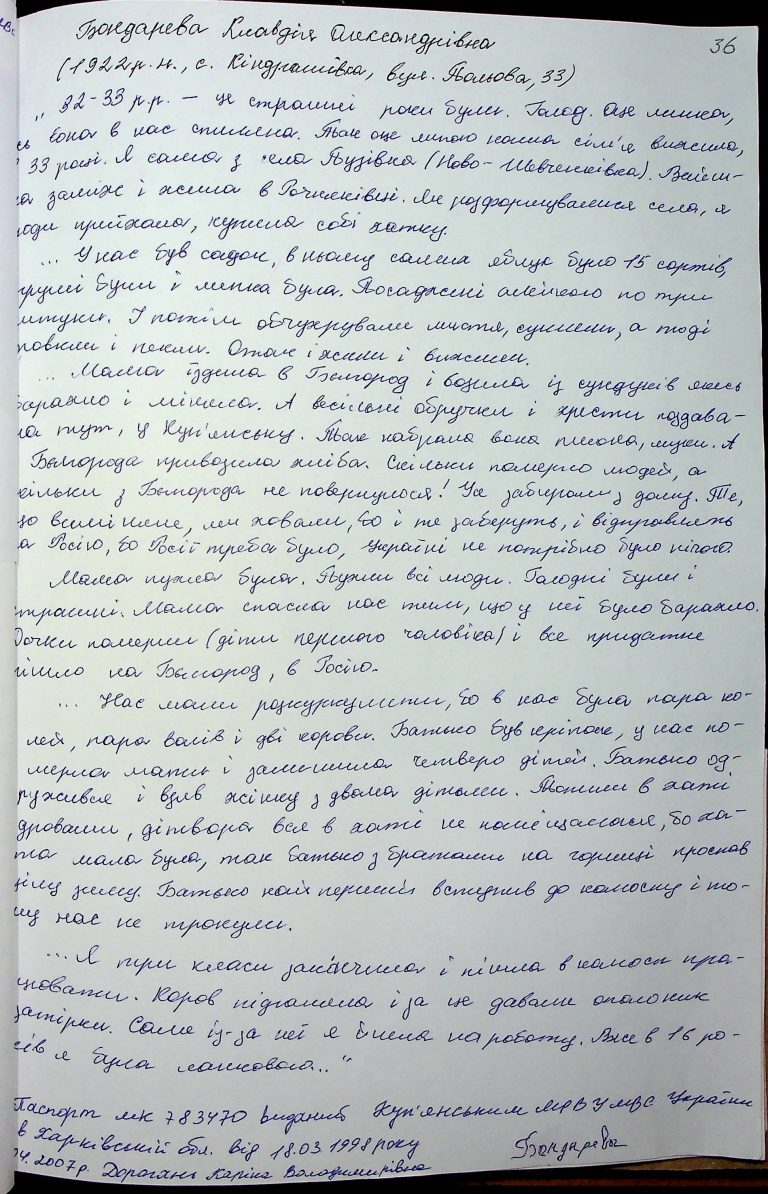 36
Бондарева Клавдія Олександрівна
(1922 р.н., с. Кіндрашівка, вул. Польова, 33)
„32-33 р.р. – це страшні роки були. Голод. Оце липка,
сь вона в нас спиляна. Так оце липою наша сім'я вижила,
33 році. Я сама з села Пузівка (Ново-Шевченківка). Вийш-
ла заміж і жила в Рочняківці. Як розформувалися села, я
юди приїхала, купила собі хатку.
... У нас був садок, в ньому самих яблук було 15 сортів,
груші були і липка була. Посаджені алейкою по три
штуки. І потім обчухрували листя, сушили, а тоді
ровкли і пекли. Отак і жили і вижили.
... Мама їздила в Бєлгород і возила із сундуків якесь
барахло і міняла. А весільні обручки і хрести поздава-
ла тут, у Куп'янську. Так набрала вона пшона, муки. А
Бєлгорода привозила хліба. Скільки померло людей, а
скільки з Бєлгорода не повернулося! Усе забирали з дому. Те,
що виміняне, ми ховали, бо і те заберуть, і відправлять
а Росію, бо Росії треба було, Україні не потрібно було нічого.
Мама пухла була. Пухли всі люди. Голодні були і
страшні. Мама спасла нас тим, що у неї було барахло.
Дочки померли (діти першого чоловіка) і все придатне
пішло на Бєлгород, в Росію.
... Нас мали розкуркулити, бо в нас була пара ко-
ней, пара волів і дві корови. Батько був кріпак, у нас по-
мерла мати і залишила четверо дітей. Батько од-
ружився і взяв жінку з двома дітьми. Топили в хаті
дровами, дітвора вся в хаті не поміщалася, бо ха-
та мала була, так батько з братами на горищі проспав
цілу зиму. Батько най перший вступив до колоспу і то-
му нас не трокули.
... Я три класи закінчила і пішла в колосп пра-
цювати. Коров підганяла і за це давали ополоник
затірки. Саме із-за неї я бігла на роботу. Вже в 16 ро-
ків я була ланковою.."
Паспорт МК 783470 виданий Куп'янським МРВ УМВС України
в Харківській обл. від 18.03 1998 року
04. 2007 р. Дорогань Каріна Володимирівна
Бондарева